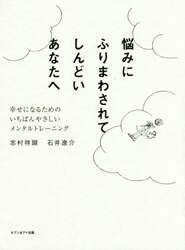 悩みに
ふりまわされて
しんどい
あなたへ
幸せになるための
いちばんやさしい
メンタルトレーニング
志村祥瑚　石井遼介
セブン&アイ出版